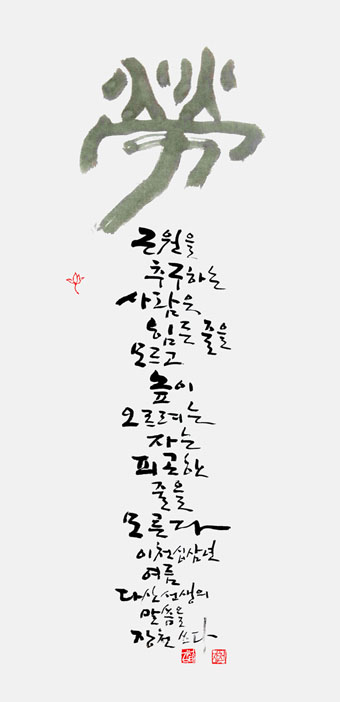 勞
근원을
추구하는
사람은
힘든 줄을
모르고
높이
오르려는
자는
피곤한
줄을
모른다
이천십삼년
여름
다산선생의
말씀을
장천 쓰다